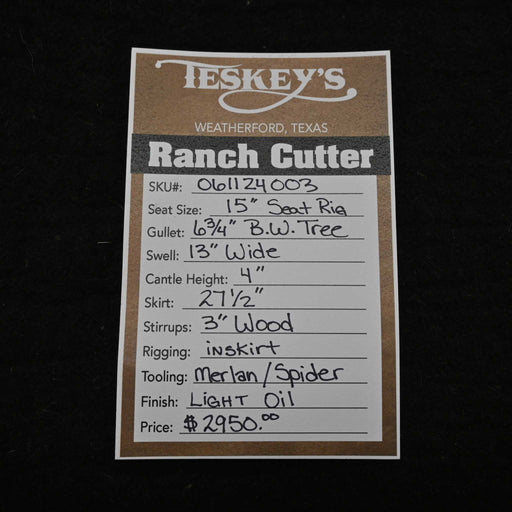 TESKEY'S
WEATHERFORD, TEXAS
Ranch Cutter
SKU#: 061124003
Seat Size: 15" Seat Rig
Gullet: 6 3/4" B.W. Tree
Swell: 13" Wide
Cantle Height: 4"
Skirt: 27 1/2"
Stirrups: 3" Wood
Rigging: inskirt
Tooling: Merlan/Spider
Finish: LIGHT Oil
Price: $2950.00